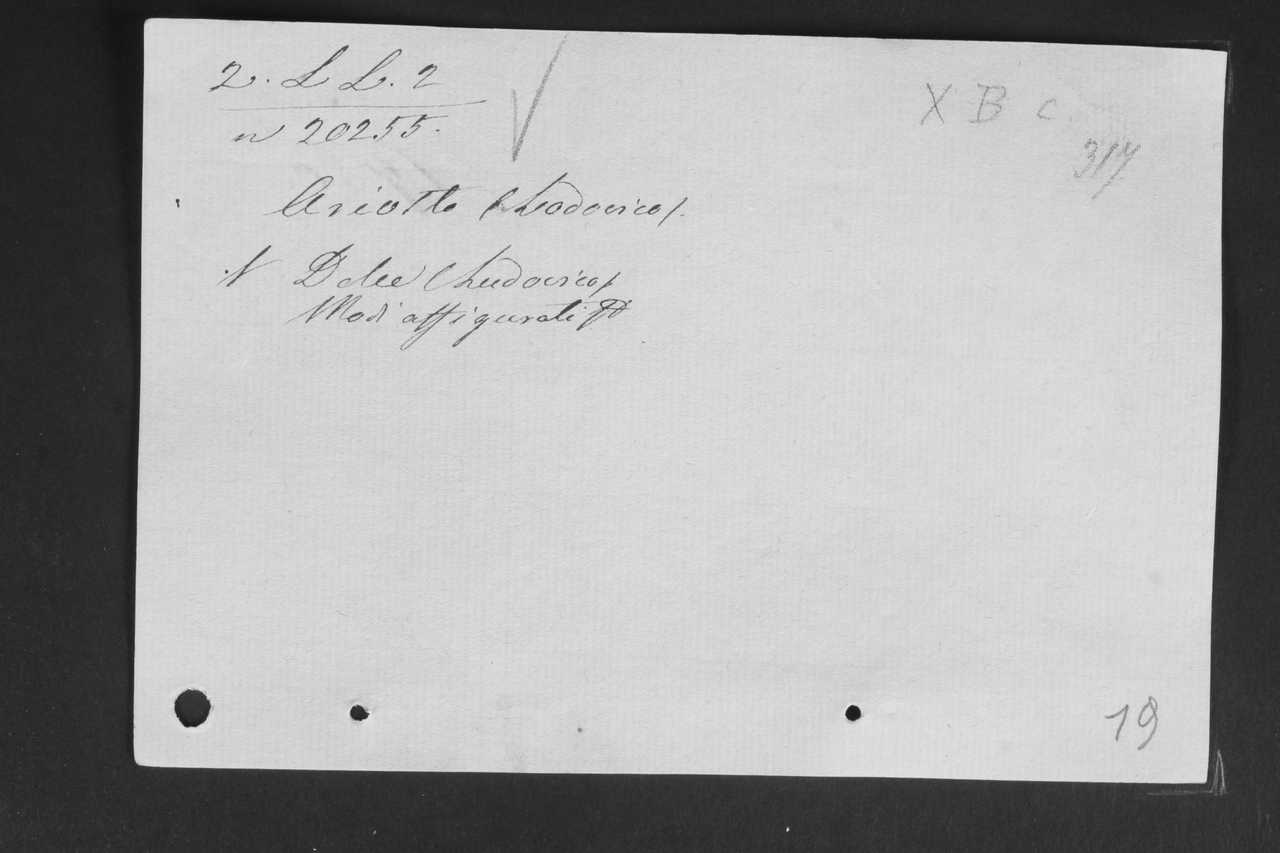 2. L L. 2
n 20255.
X B c
317
Ariosto (Lodovico).
V Dolce (Ludovico)
Modi affigurati
19